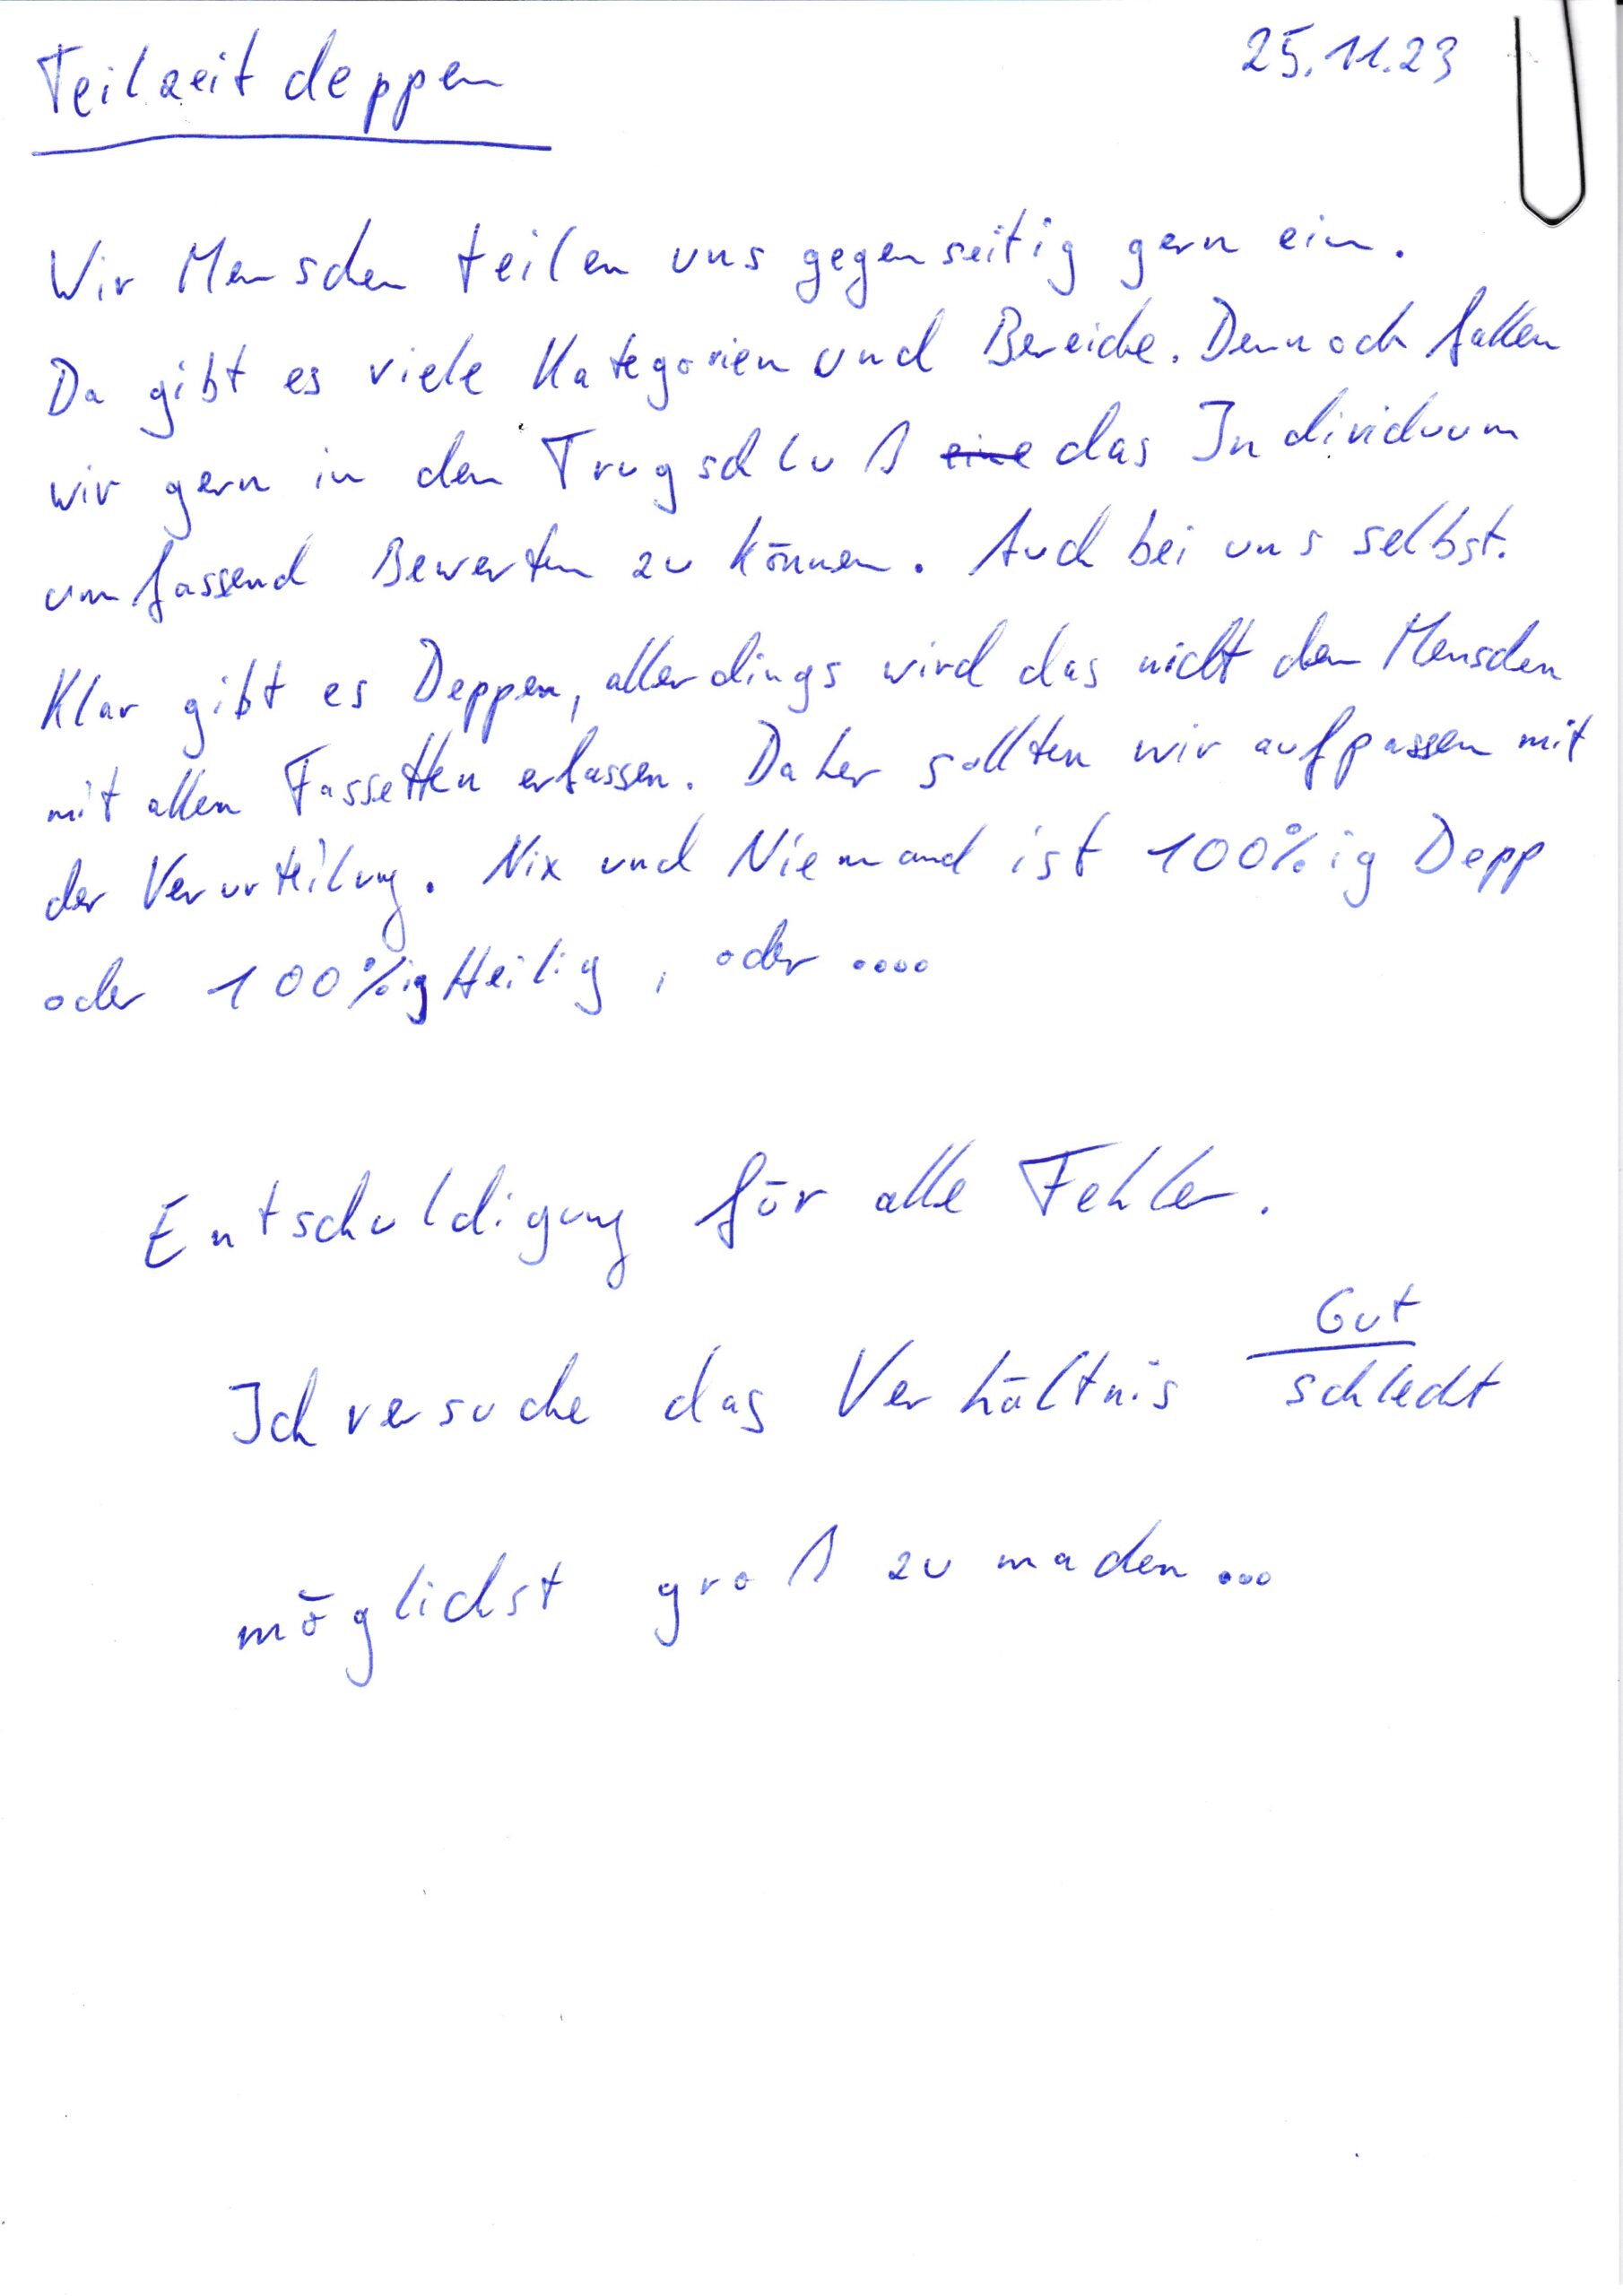 Teilzeitdeppen 25.11.23
Wir Menschen teilen uns gegenseitig gern ein.
Da gibt es viele Kategorien und Bereiche. Dennoch fallen
wir gern in den Trugschluß eine das Individuum
umfassend Bewerten zu können. Auch bei uns selbst.
Klar gibt es Deppen, allerdings wird das nicht den Menschen
mit allen Fassetten erfassen. Daher sollten wir aufpassen mit
der Verurteilung. Nix und Niemand ist 100%ig Depp
oder 100%ig Heilig, oder ....
Entschuldigung für alle Fehler.
Ich versuche das Verhältnis Gut
schlecht
möglichst groß zu machen...